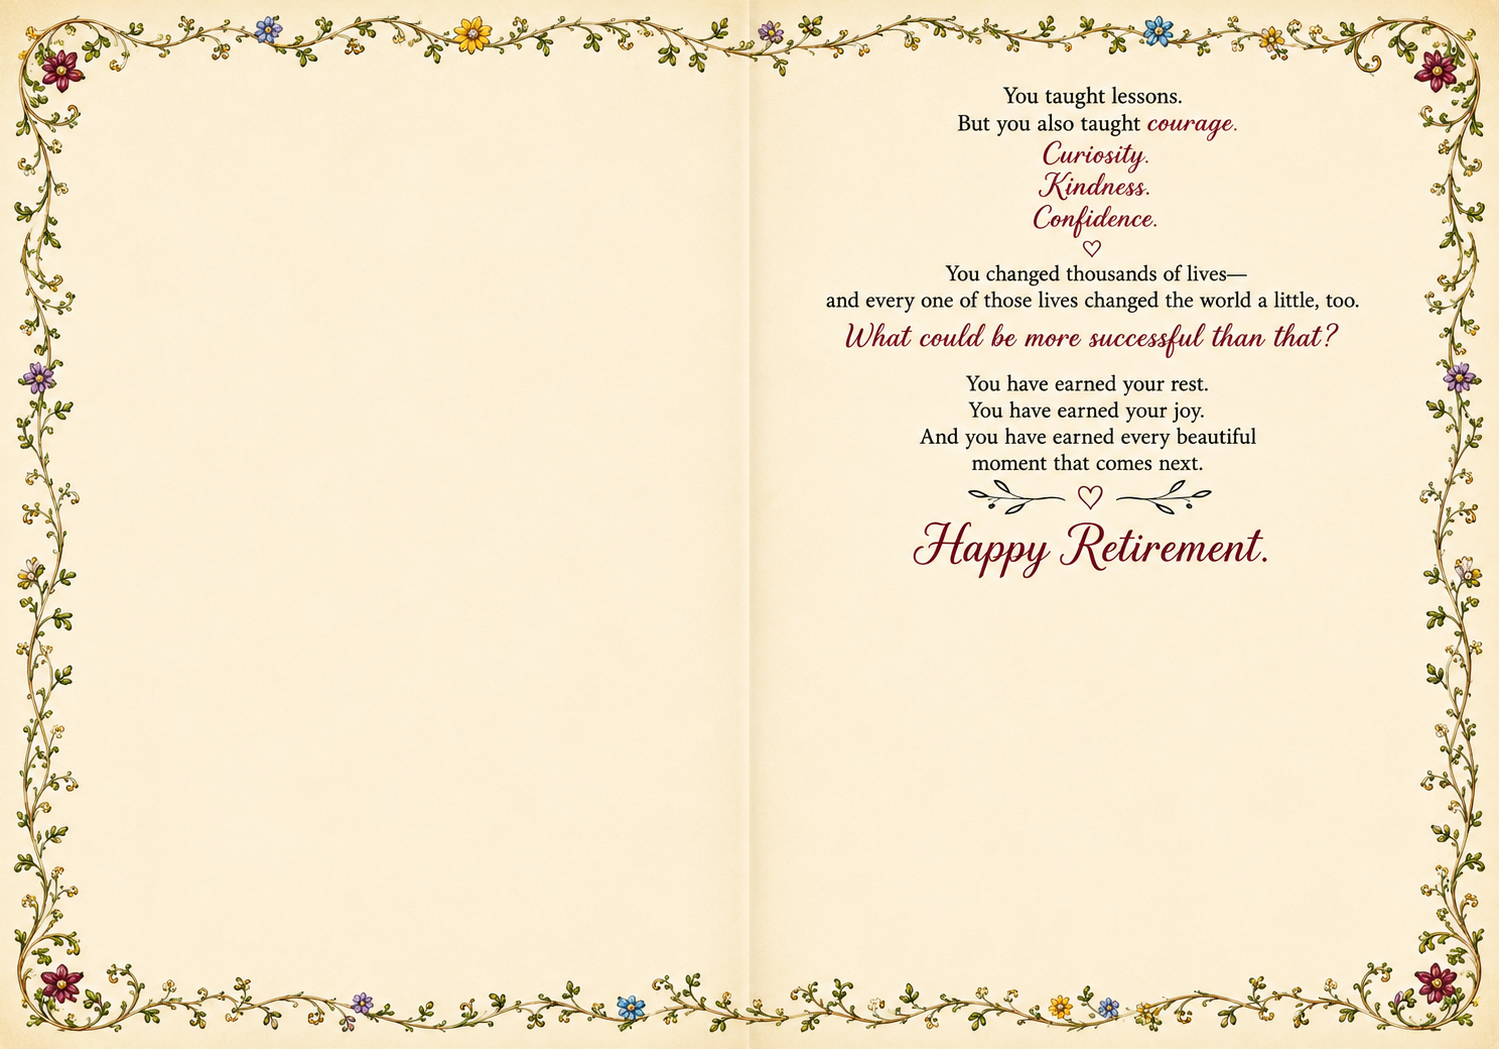 You taught lessons.
But you also taught courage.
Curiosity.
Kindness.
Confidence.
You changed thousands of lives—
and every one of those lives changed the world a little, too.
What could be more successful than that?
You have earned your rest.
You have earned your joy.
And you have earned every beautiful
moment that comes next.
Happy Retirement.